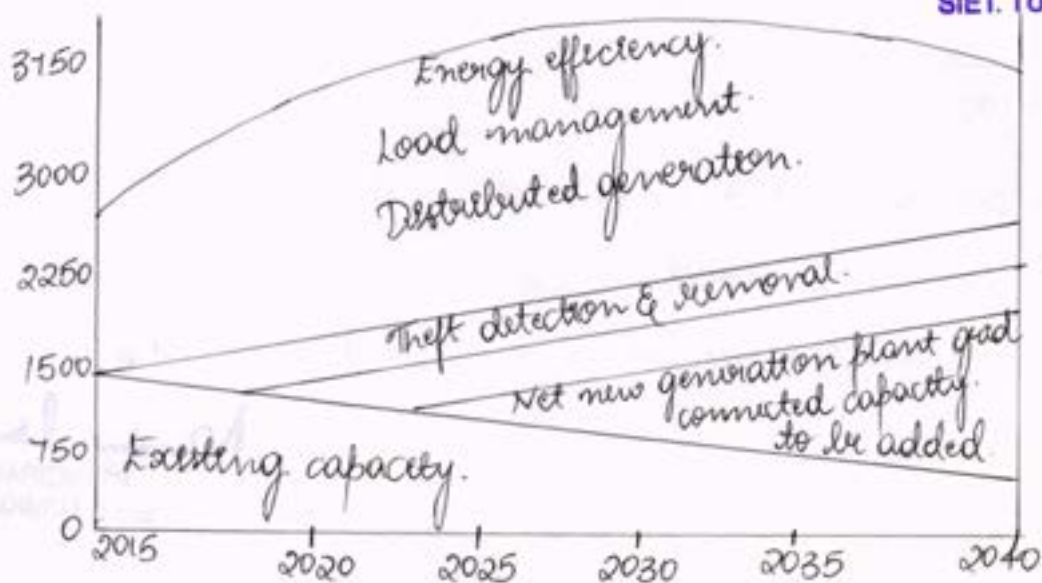 SIET. TU
3750
Energy efficiency.
Load management.
3000
Distributed generation.
2250
Theft detection & removal.
1500
Net new generation plant grad
connected capacity.
750
to be added
Existing capacity.
0
2015
2020
2025
2030
2035
2040